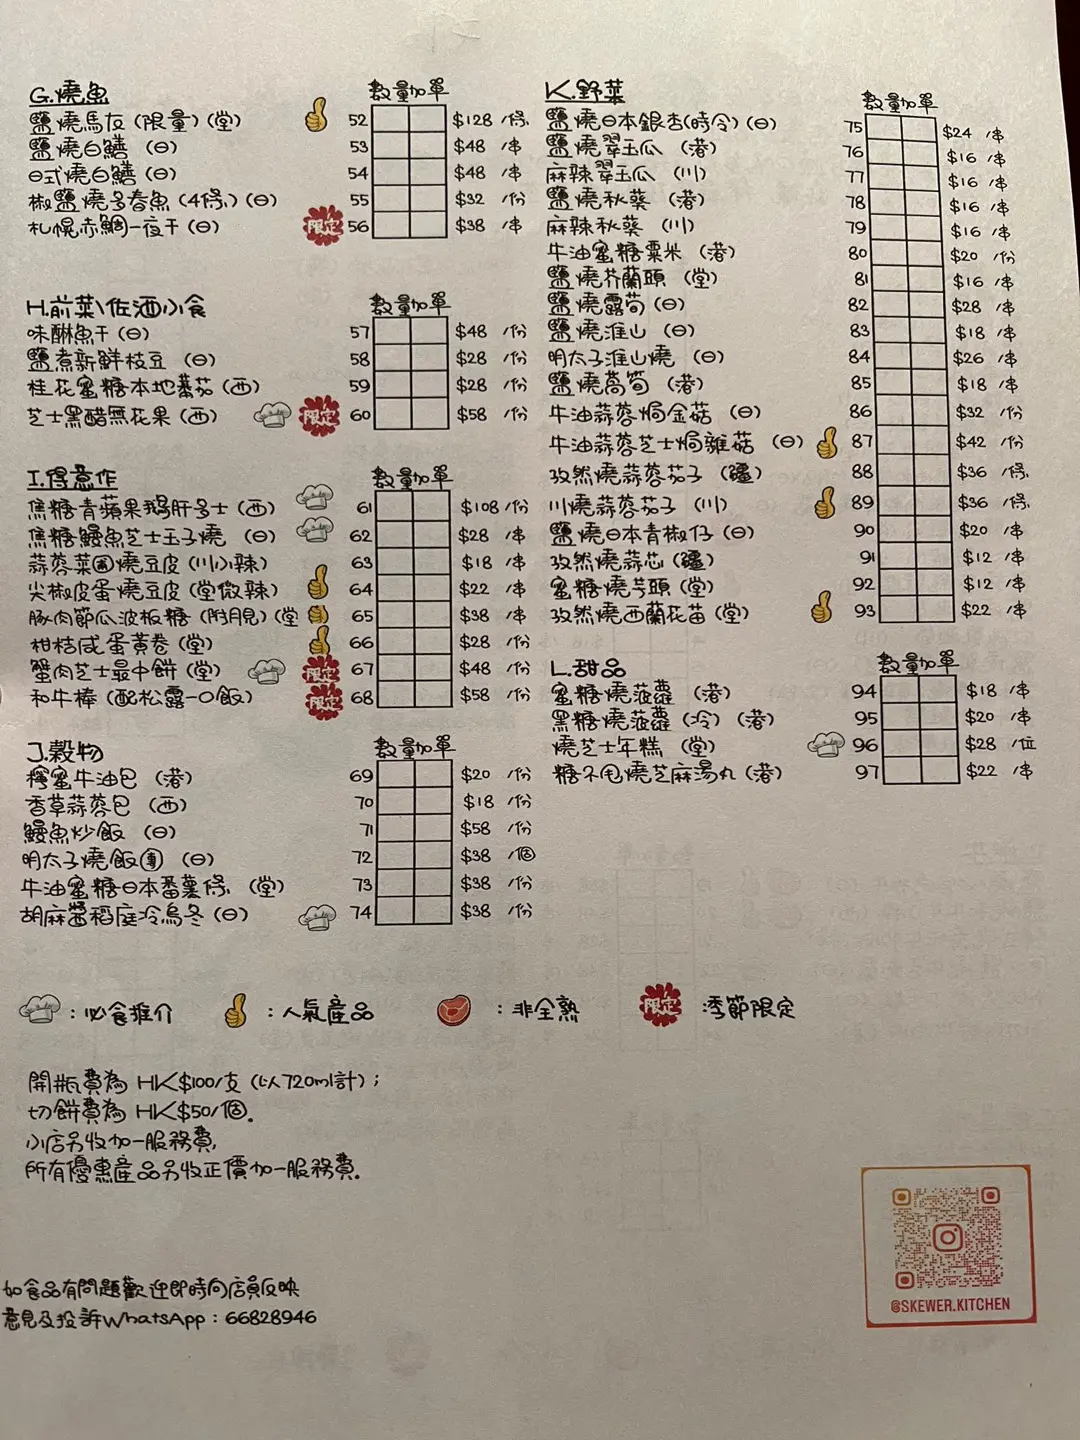 G.燒魚 數量 加單
鹽燒馬友 (限量) (堂) 52 $128 /條
鹽燒白鱔 (日) 53 $48 /串
日式燒白鱔 (日) 54 $48 /串
椒鹽燒多春魚 (4條) (日) 55 $32 /份
札幌赤鯛一夜干 (日) 限定 56 $38 /串
H.前菜\佐酒小食 數量 加單
味醂魚干 (日) 57 $48 /份
鹽煮新鮮枝豆 (日) 58 $28 /份
桂花蜜糖本地蕃茄 (西) 59 $28 /份
芝士黑醋無花果 (西) 限定 60 $58 /份
I.得意作 數量 加單
焦糖青蘋果鵝肝多士 (西) 61 $108 /份
焦糖鰻魚芝士玉子燒 (日) 62 $28 /串
蒜蓉菜圃燒豆皮 (川小辣) 63 $18 /串
尖椒皮蛋燒豆皮 (堂微辣) 64 $22 /串
豚肉節瓜波板糖 (附月見) (堂 65 $38 /串
柑桔咸蛋黃卷 (堂) 66 $28 /份
蟹肉芝士最中餅 (堂) 限定 67 $48 /份
和牛棒 (配松露一口飯) 限定 68 $58 /份
J.穀物 數量 加單
檸蜜牛油包 (港) 69 $20 /份
香草蒜蓉包 (西) 70 $18 /份
鰻魚炒飯 (日) 71 $58 /份
明太子燒飯團 (日) 72 $38 /個
牛油蜜糖日本番薯條 (堂) 73 $38 /份
胡麻醬稻庭冷烏冬 (日) 74 $38 /份
K.野菜 數量 加單
鹽燒日本銀杏(時令) (日) 75 $24 /串
鹽燒翠玉瓜 (港) 76 $16 /串
麻辣翠玉瓜 (川) 77 $16 /串
鹽燒秋葵 (港) 78 $16 /串
麻辣秋葵 (川) 79 $16 /串
牛油蜜糖粟米 (港) 80 $20 /份
鹽燒芥蘭頭 (堂) 81 $16 /串
鹽燒露荀 (日) 82 $28 /串
鹽燒淮山 (日) 83 $18 /串
明太子淮山燒 (日) 84 $26 /串
鹽燒萵筍 (港) 85 $18 /串
牛油蒜蓉焗金菇 (日) 86 $32 /份
牛油蒜蓉芝士焗雜菇 (日) 87 $42 /份
孜然燒蒜蓉茄子 (疆) 88 $36 /條
川燒蒜蓉茄子 (川) 89 $36 /條
鹽燒日本青椒仔 (日) 90 $20 /串
孜然燒蒜芯 (疆) 91 $12 /串
蜜糖燒芋頭 (堂) 92 $12 /串
孜然燒西蘭花苗 (堂) 93 $22 /串
L.甜品 數量 加單
蜜糖燒菠蘿 (港) 94 $18 /串
黑糖燒菠蘿 (冷) (港) 95 $20 /串
燒芝士年糕 (堂) 96 $28 /位
糖不甩燒芝麻湯丸 (港) 97 $22 /串
：必食推介 ：人氣產品 ：非全熟 限定 季節限定
開瓶費為 HK$100/支 (以720ml計)；
切餅費為 HK$50/個。
小店另收加一服務費，
所有優惠產品另收正價加一服務費。
如食品有問題歡迎即時向店員反映
意見及投訴WhatsApp：66828946
@SKEWER.KITCHEN